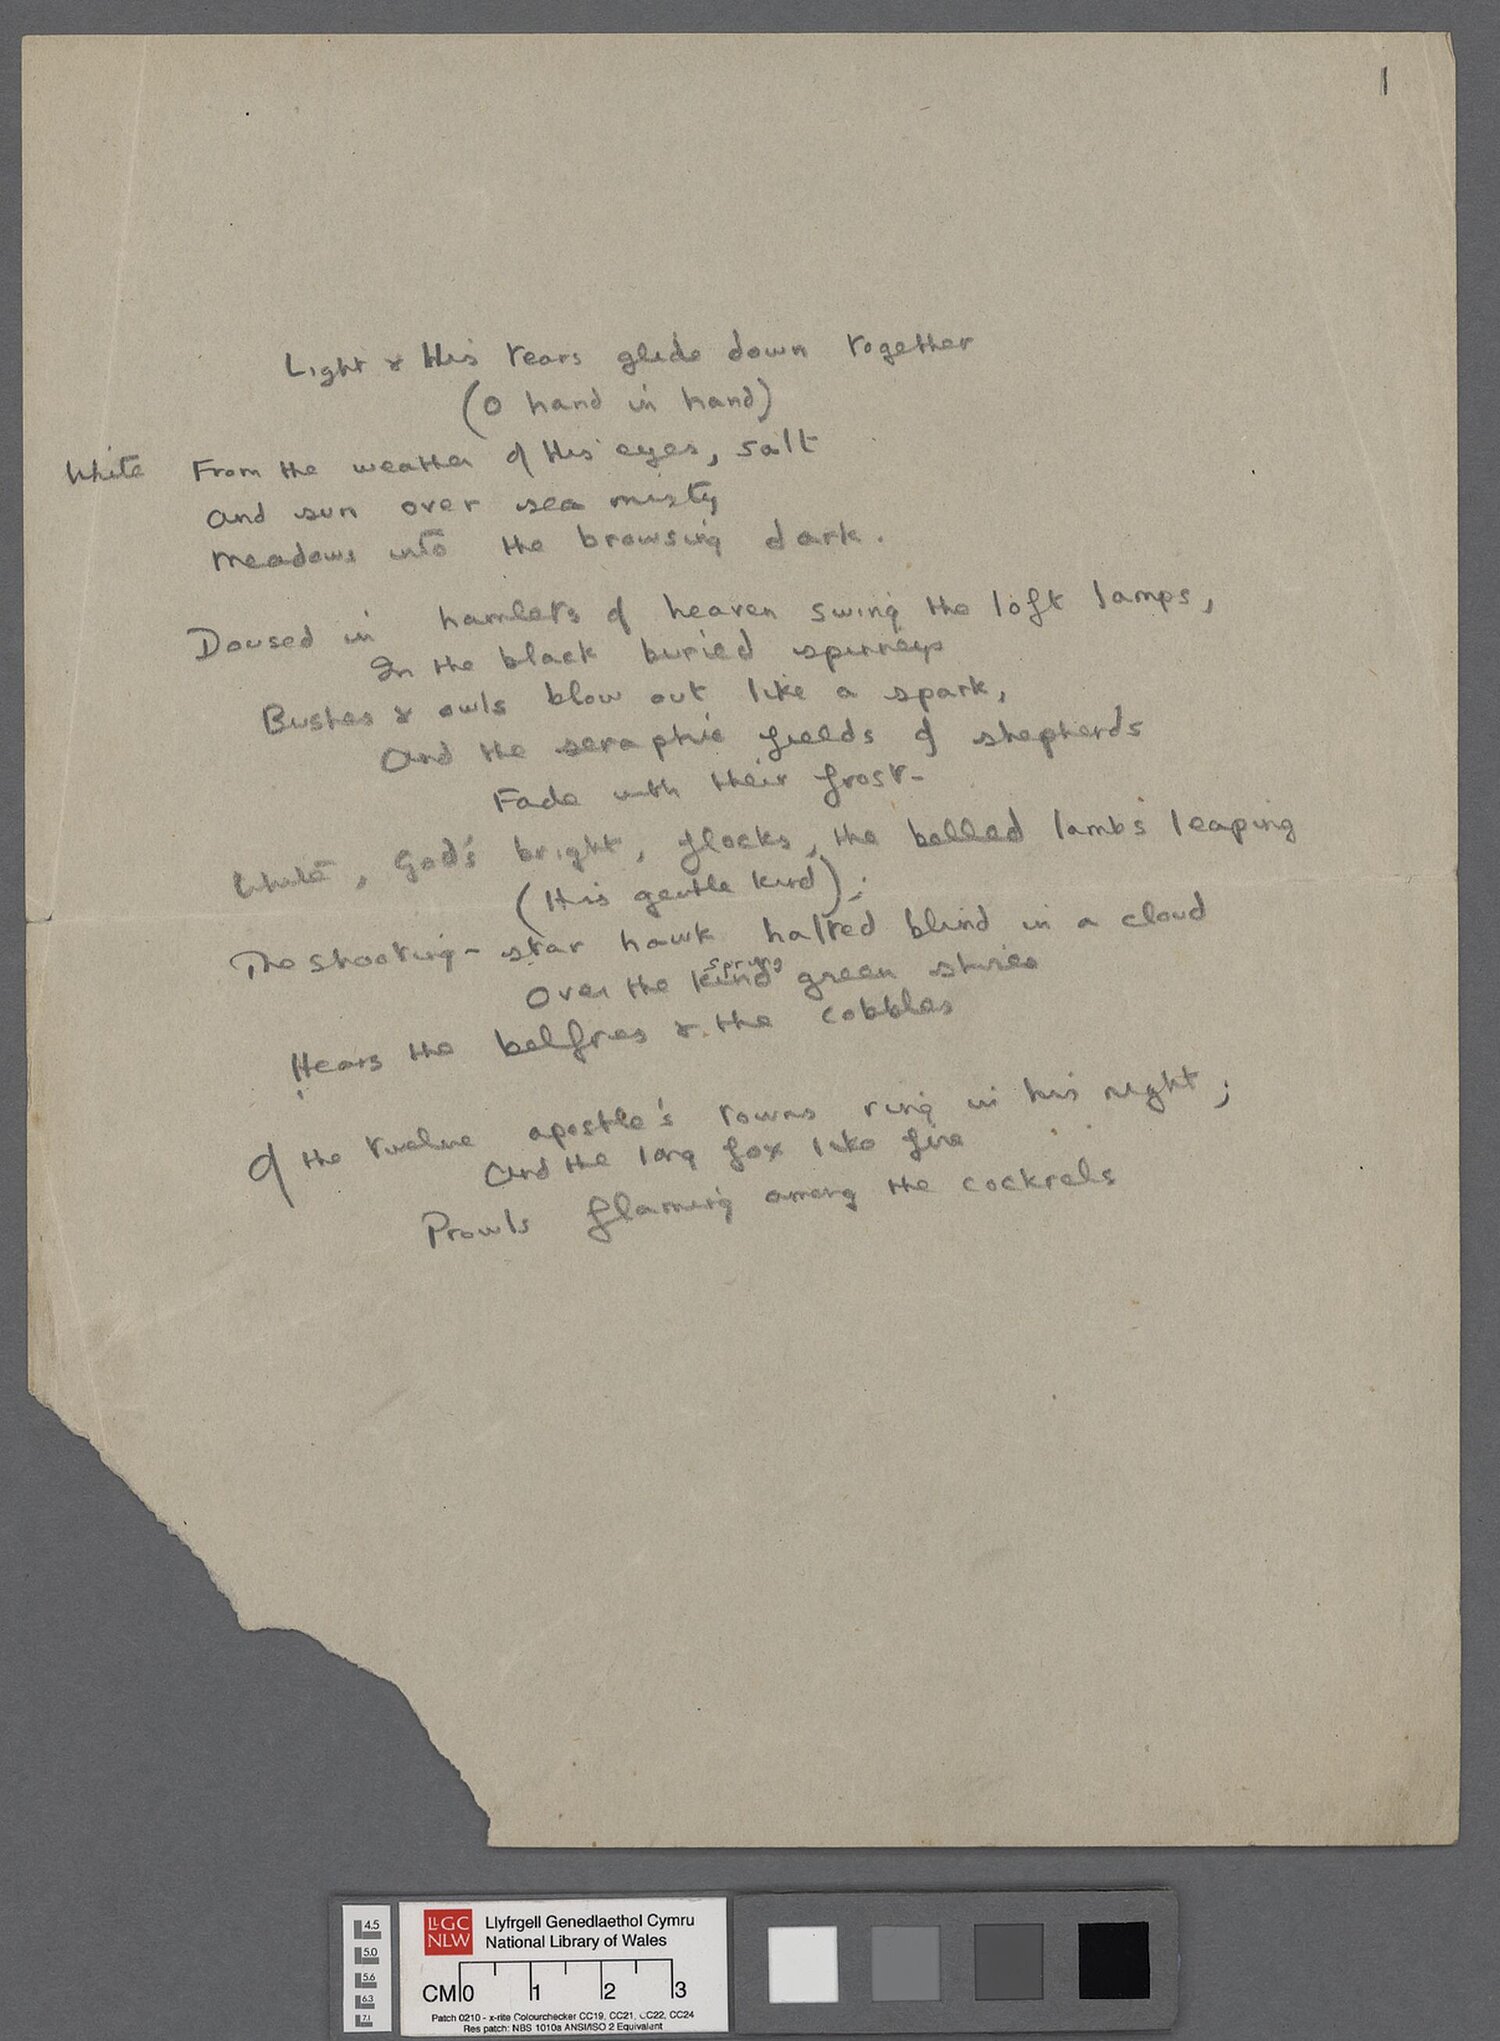 1
Light & His tears glide down together
(O hand in hand)
White From the weather of His eyes, salt
And sun over sea misty
Meadows into the browsing dark.
Doused in hamlets of heaven swing the loft lamps,
In the black buried spinneys
Bushes & owls blow out like a spark,
And the seraphic fields of shepherds
Fade with their frost-
White, God's bright, flocks, the belled lambs leaping
(His gentle kind);
The shooting-star hawk halted blind in a cloud
sprung
Over the kind green shires
Hears the belfries & the cobbles
Of the twelve apostle's towns ring in his night;
And the long fox like fire
Prowls flaming among the cockrels
LLGC
NLW
Llyfrgell Genedlaethol Cymru
National Library of Wales
CM 0 1 2 3
Patch 0210 - x-rite Colourchecker CC19, CC21, CC22, CC24
Res patch: NBS 1010a ANSI/ISO 2 Equivalent
4.5
5.0
5.6
6.3
7.1